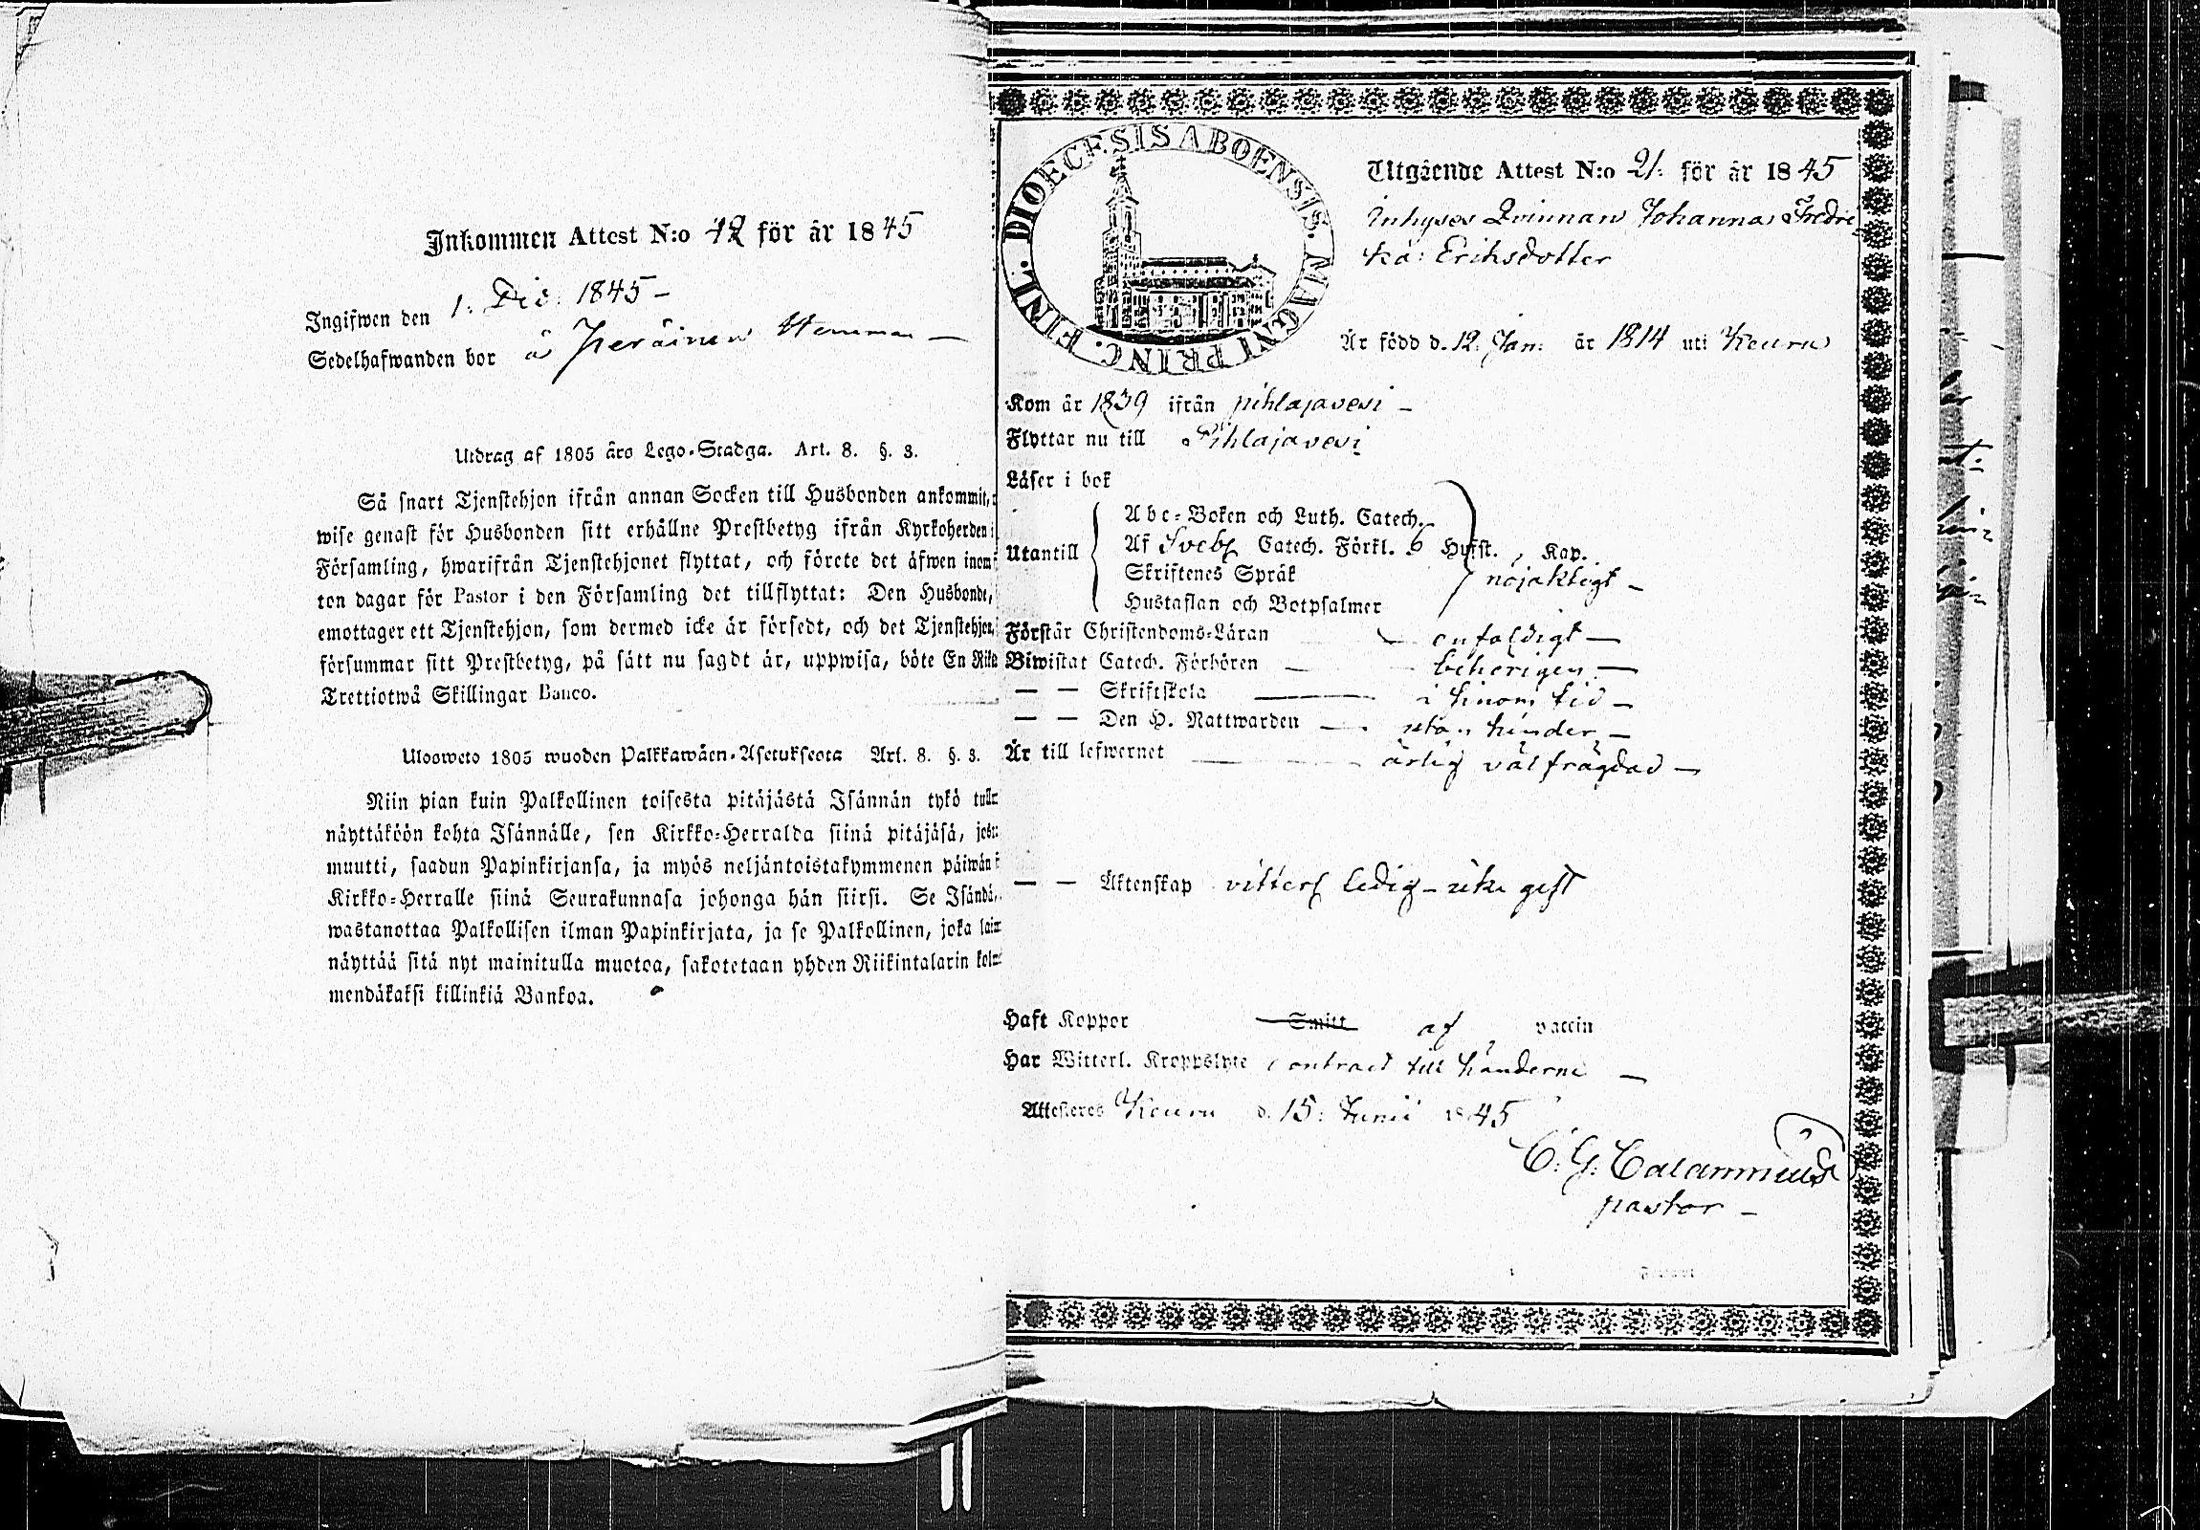 Inkommen Attest N:o 12 för år 1845
Ingifwen den 1. Dec. 1845 –
Sedelhafwanden bor å Heräinen Hemman —
Utdrag af 1805 års Lego-Stadga. Art. 8. §. 3.
Så snart Tjenstehjon ifrån annan Socken till Husbonden ankommit,
wise genast för Husbonden sitt erhållne Prestbetyg ifrån Kyrkoherden i
Församling, hwarifrån Tjenstehjonet flyttat, och förete det äfwen inom
ton dagar för Pastor i den Församling det tillflyttat: Den Husbonde,
emottager ett Tjenstehjon, som dermed icke är försedt, och det Tjenstehjon,
försummar sitt Prestbetyg, på sätt nu sagdt är, uppwisa, böte En Riks
Trettiotwå Skillingar Banco.
Ulosweto 1805 wuoden Palkkawäen-Asetuksesta Art. 8. §. 3.
Niin pian kuin Palkollinen toisesta pitäjästä Isännän tykö tull
näyttäköön kohta Isännälle, sen Kirkko-Herralda siinä pitäjäsä, jost
muutti, saadun Papinkirjansa, ja myös neljäntoistakymmenen päiwän
Kirkko-Herralle siinä Seurakunnasa johonga hän siirsi. Se Isändä,
wastanottaa Palkollisen ilman Papinkirjata, ja se Palkollinen, joka laim
näyttää sitä nyt mainitulla muotoa, sakotetaan yhden Riikintalarin kolm
mendäkaksi killinkiä Bankoa.
DIOECESIS ABOENSIS. MAGNI PRINC. FINL.
Utgående Attest N:o 21. för år 1845
Inhyses Qvinnan Johanna Fredri
ka Eriksdotter
Är född d. 12. Jan: år 1814 uti Keuru
Kom år 1839 ifrån pihlajavesi –
Flyttar nu till Pihlajavesi
Läser i bok
Utantill
Abc-Boken och Luth. Catech.
Af Sveb. Catech. Förkl. 6 Hufst. , Kap.
Skriftenes Språk nöjaktigt –
Hustaflan och Botpsalmer
Förstår Christendoms-Läran enfaldigt —
Biwistat Catech. Förhören — behörigen —
— — Skriftskola — i hinom tid –
— — Den H. Nattwarden — utan hinder –
Är till lefwernet ärlig välfrägdad –
— — Äktenskap vitterl. ledig – icke gift
Haft Koppor Smitt af vaccin
Har Witterl. Kroppslyte contract till händerne —
Attesteres Keuru d. 15. Junii 1845
C. G. Calamnius
pastor –